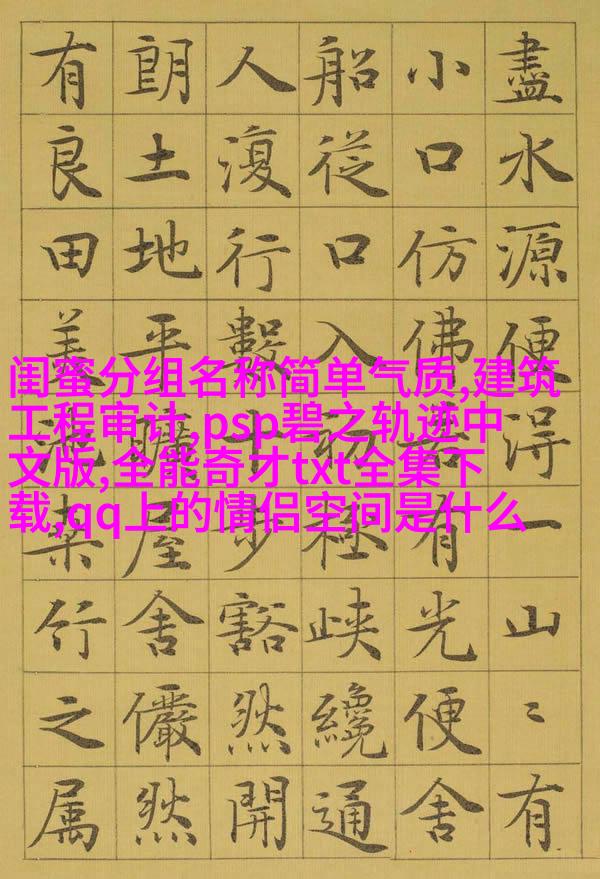 盡水源便得一山〻有
小口仿佛若有光便舍
船從口入初極峽纔通
人復行數十步豁然開
朗土地平曠屋舍儼然
有良田美池桑竹之属
闺蜜分组名称简单气质,建筑
工程审计,psp碧之轨迹中
文版,全能奇才txt全集下
载,qq上的情侣空间是什么